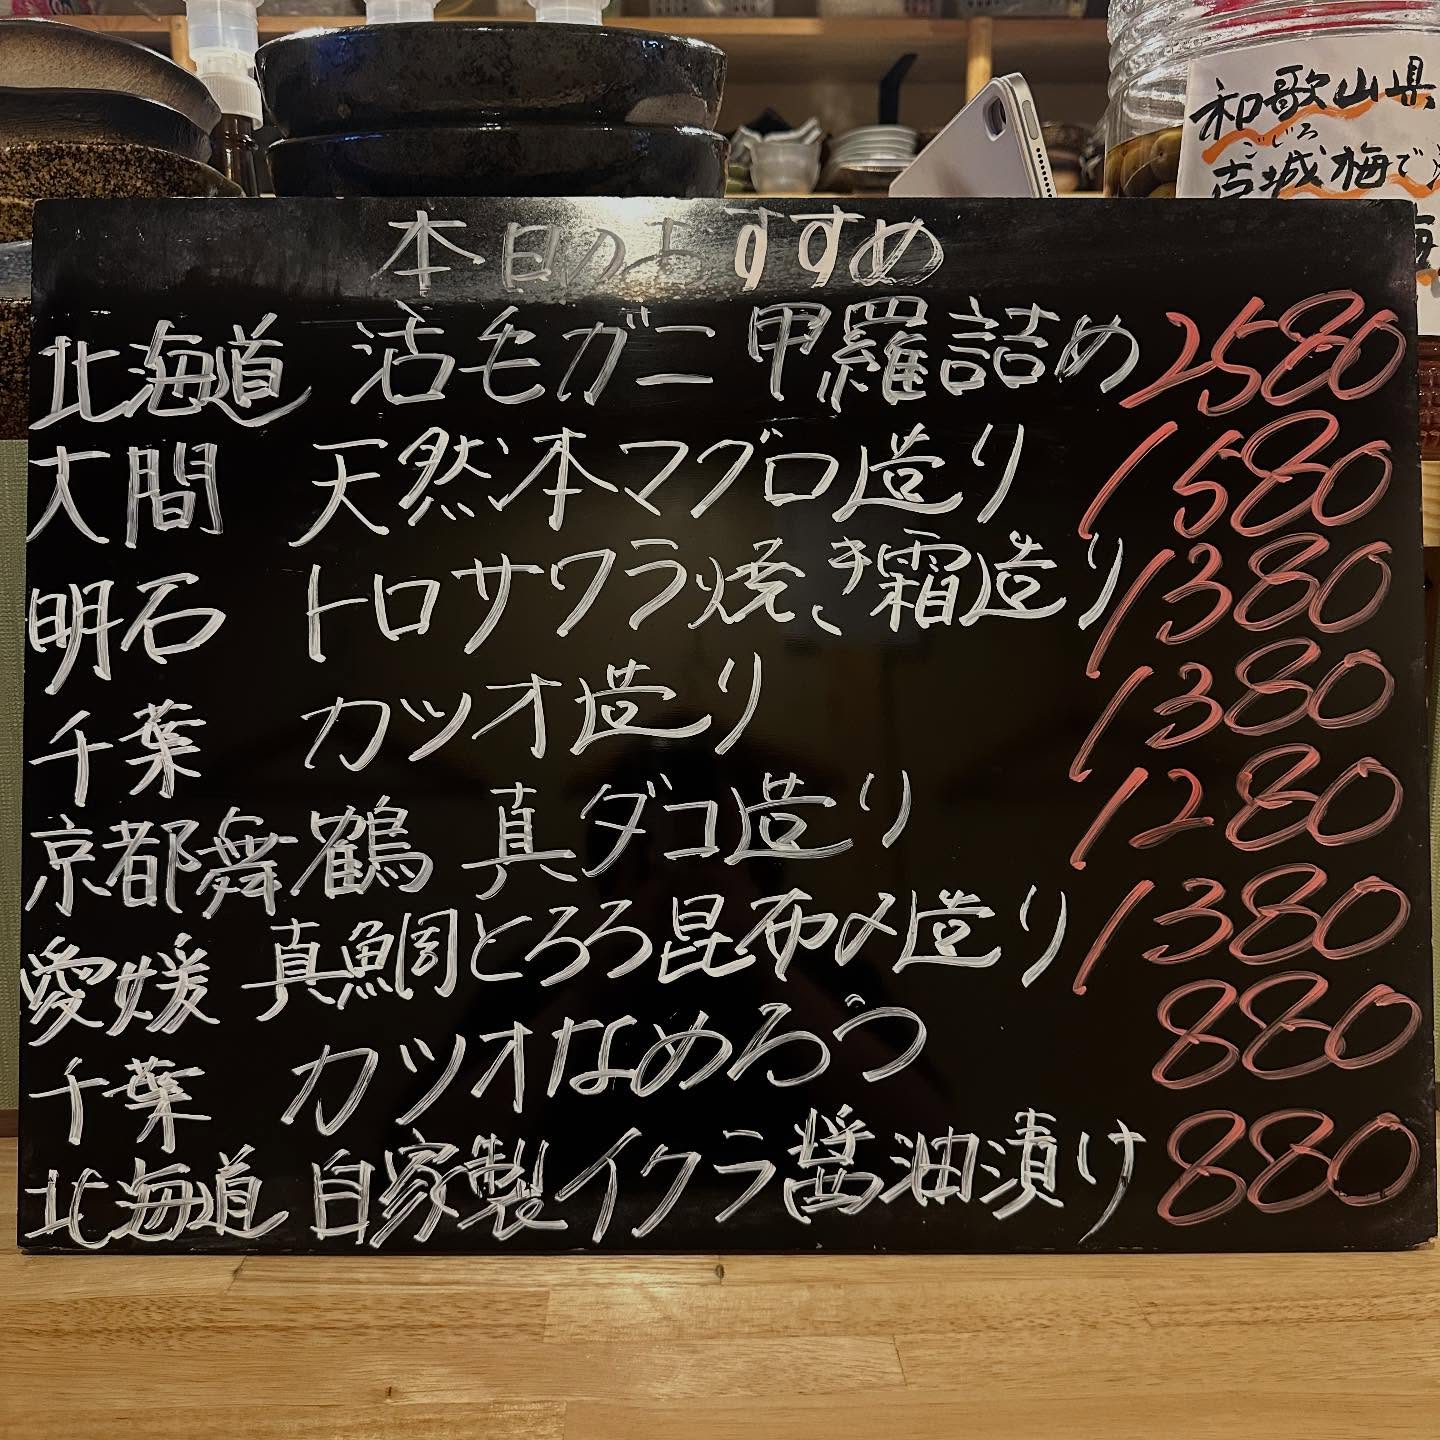 和歌山県
ごじろ
古城梅で
本日のおすすめ
北海道 活毛ガニ甲羅詰め 2580
大間 天然本マグロ造り 1580
明石 トロサワラ焼き霜造り 1380
千葉 カツオ造り 1380
京都舞鶴 真ダコ造り 1280
愛媛 真鯛とろろ昆布〆造り 1380
千葉 カツオなめろう 880
北海道 自家製イクラ醤油漬け 880